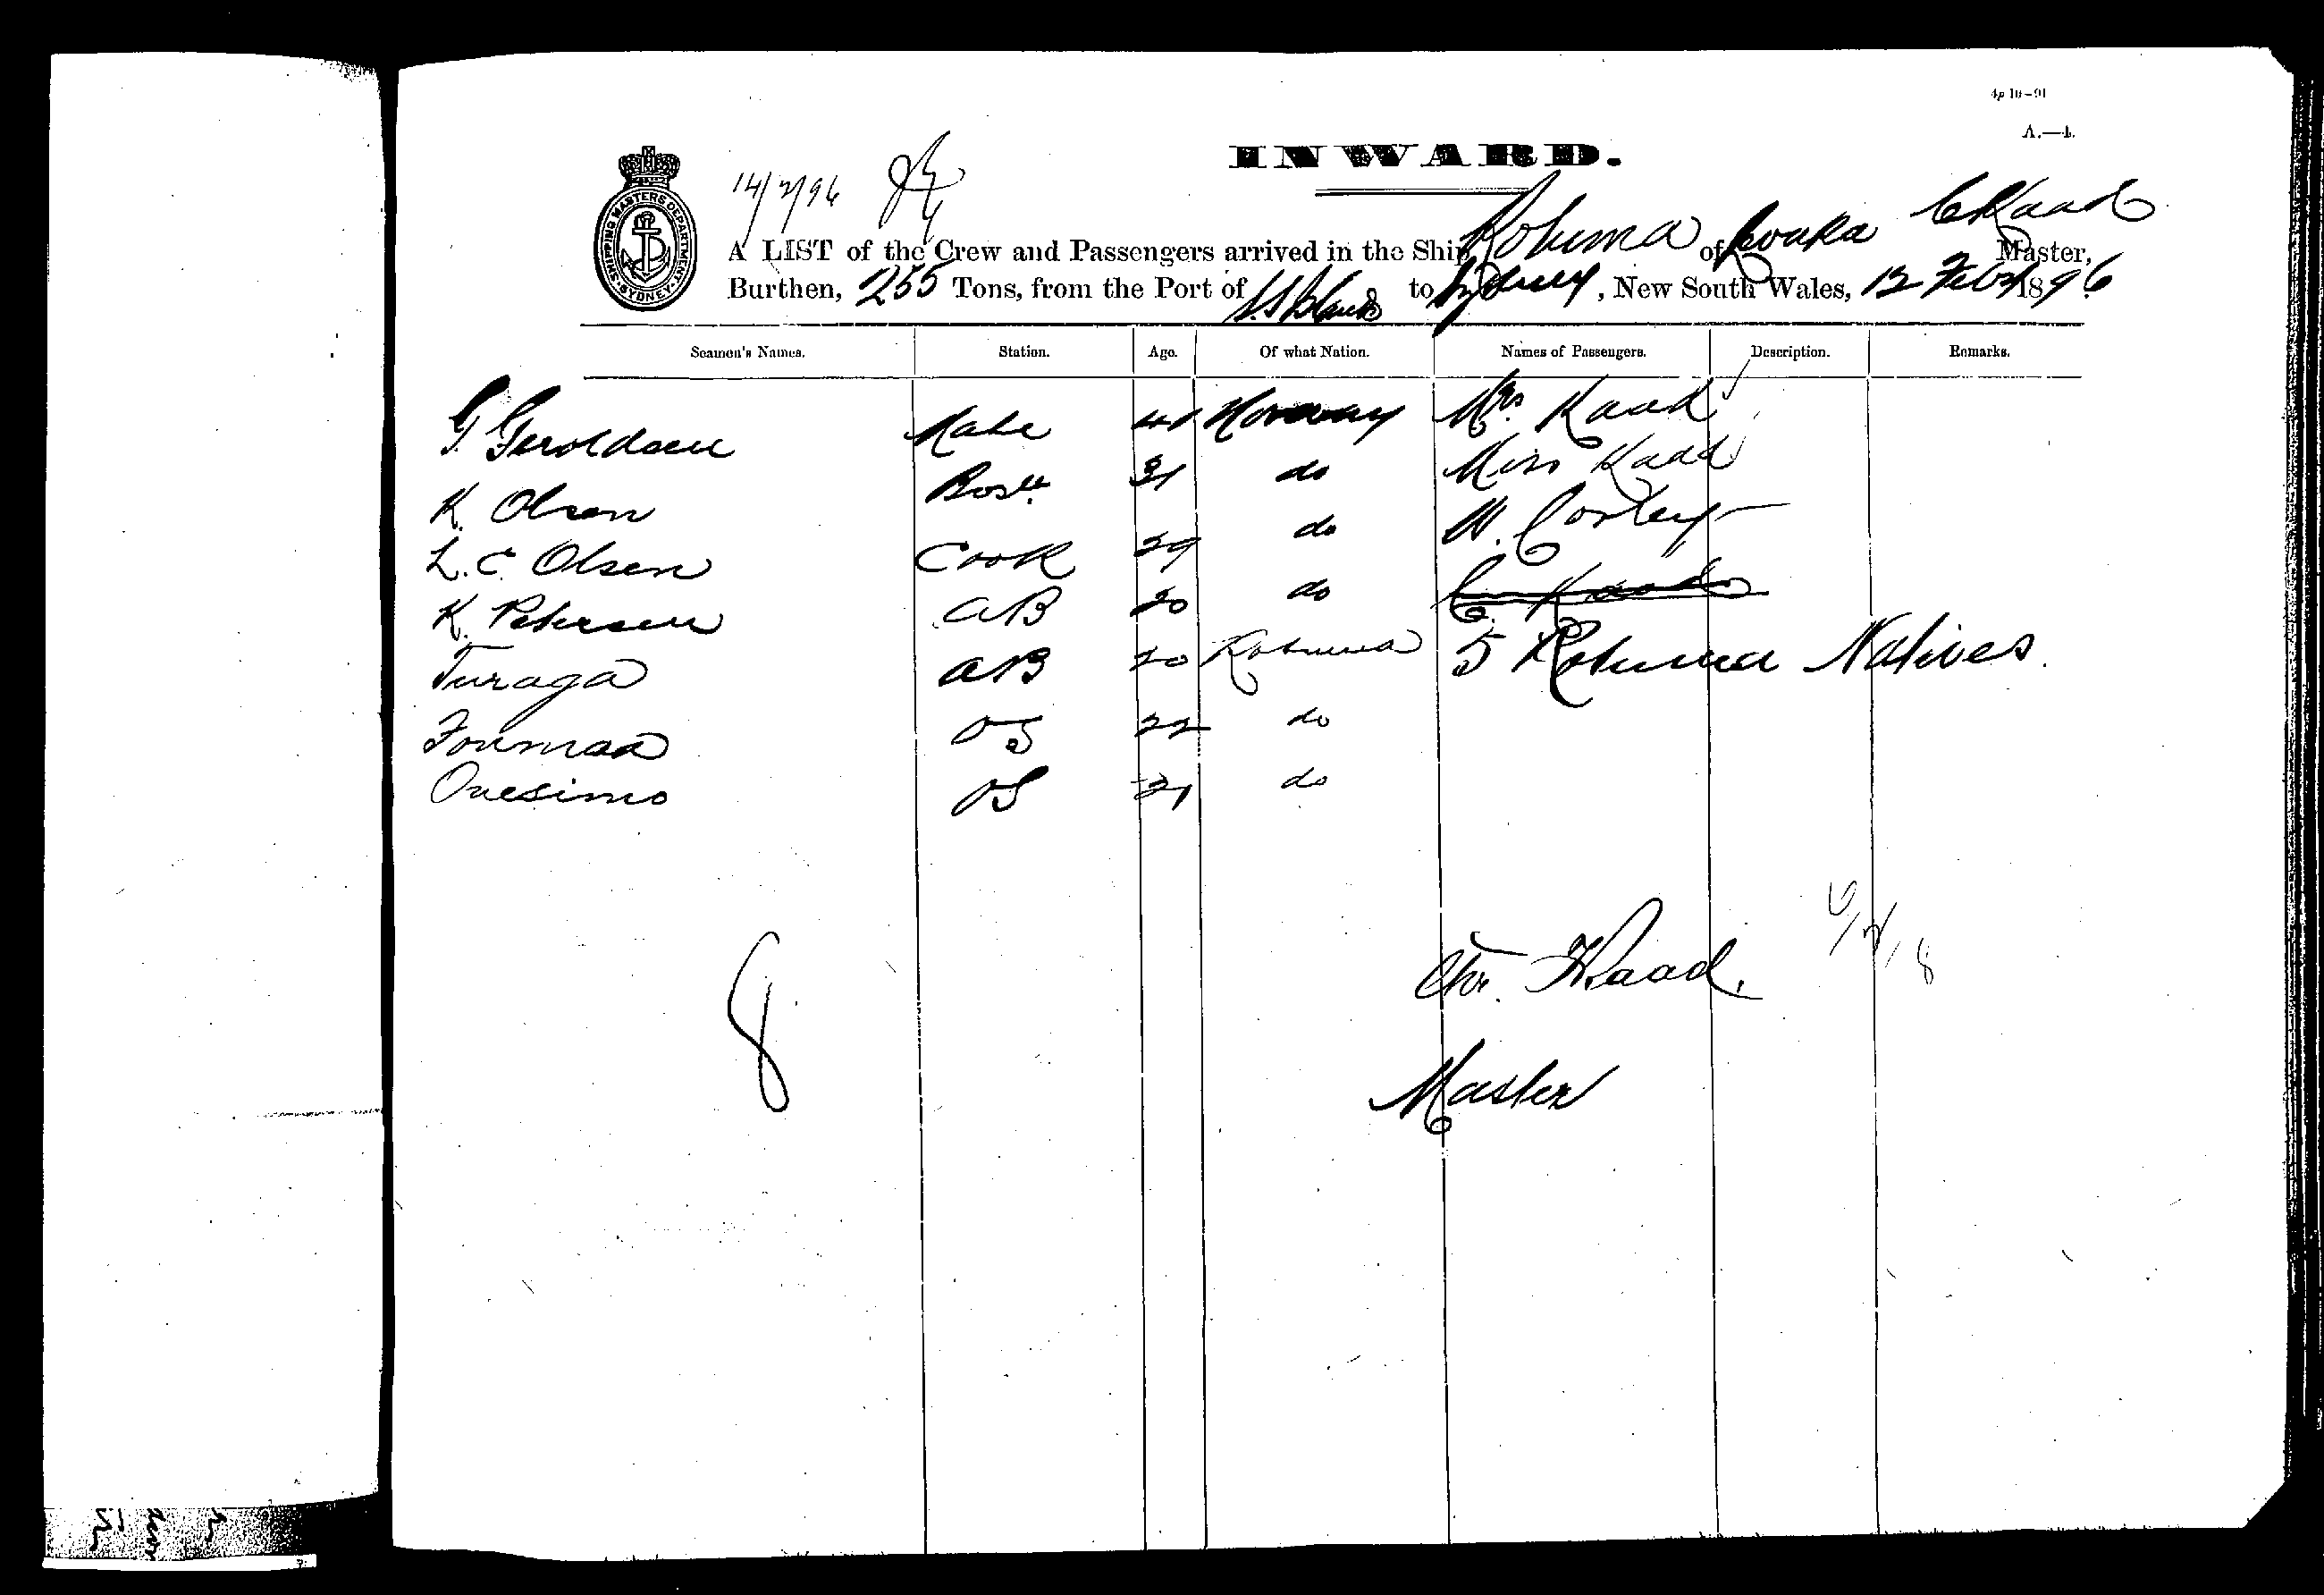 4p 10-91
A.—4.
INWARD.
14/2/96
SHIPPING MASTERS DEPARTMENT SYDNEY
A LIST of the Crew and Passengers arrived in the Ship Rotuma of Levuka C Kaad Master,
Burthen, 255 Tons, from the Port of S.S Islands to Sydney, New South Wales, 12 Feby 1896
Seamen's Names. Station. Age. Of what Nation. Names of Passengers. Description. Remarks.
G Geroldsen Mate 41 Norway Mrs Kaad
K. Olsen Bosn 31 do Miss Kaad
L. C. Olsen Cook 29 do W. Corley
K. Petersen AB 20 do C. Kaad
Turaga AB 20 Rotuma 5 Rotuma Natives
Founmaa OS 22 do
Onesimo OS 21 do
8
Chr. Kaad.
Master